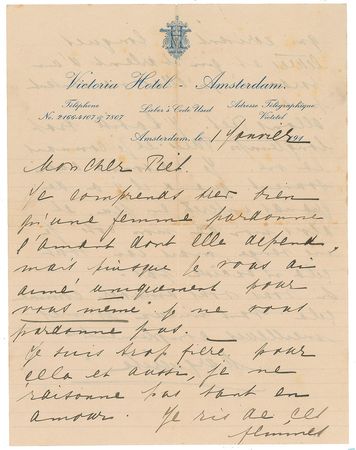 Victoria Hotel - Amsterdam.
Téléphone
No. 2166-4107 & 7807
Lieber's Code Used
Adresse Télégraphique
Vichotel
Amsterdam, le 1 Janvier 191
Mon cher Piet.
Je comprends tres bien
qu'une femme pardonne
l'amant dont elle dépend,
mais puisque je vous ai
aimé uniquement pour
vous même je ne vous
pardonne pas.
Je suis trop fière pour
cela et aussi, je ne
raisonne pas tant en
amour. Je ris de ces
femmes